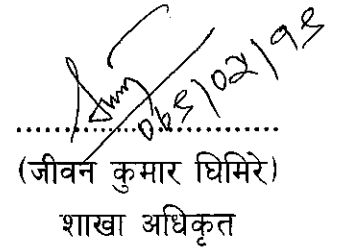 ०७९/०२/१९
(जीवन कुमार घिमिरे)
शाखा अधिकृत